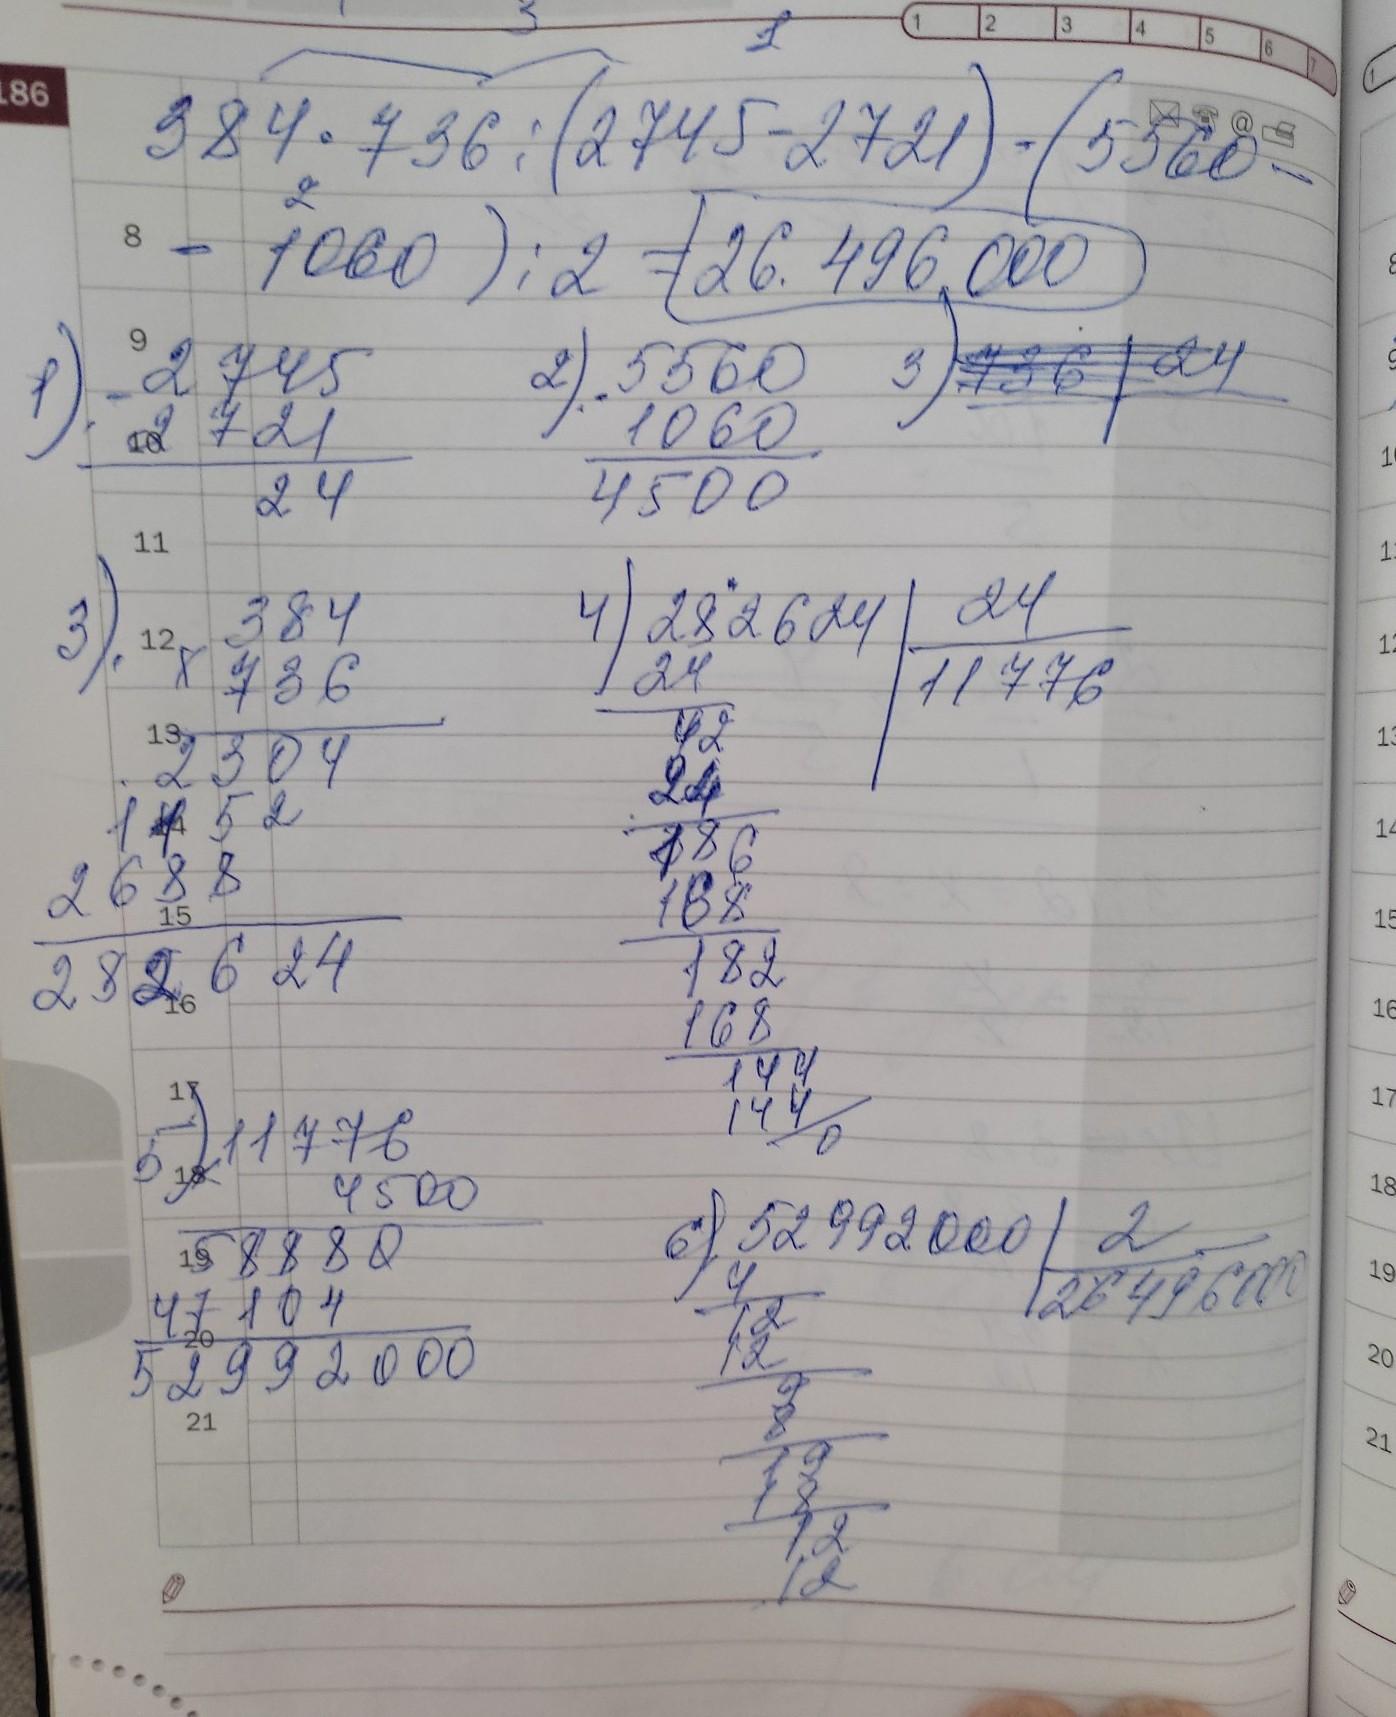 3
1
1 2 3 4 5 6 7
186
384 · 736 : (2745 - 2721) · (5560 -
2
8 - 1060) : 2 = 26.496.000
9
1). - 2745
10 2721
24
2). - 5560
1060
4500
3) 736 24
11
3). 12 384
x 736
13 2304
14 1152
2688
15
282624
16
4) 282624 24
24 11776
42
24
186
168
182
168
144
144
0
17
5) 11776
18 x 4500
19 58880
47104
20
52992000
21
6) 52992000 2
4 26496000
12
12
9
8
19
18
12
12
1
8
9
10
11
12
13
14
15
16
17
18
19
20
21